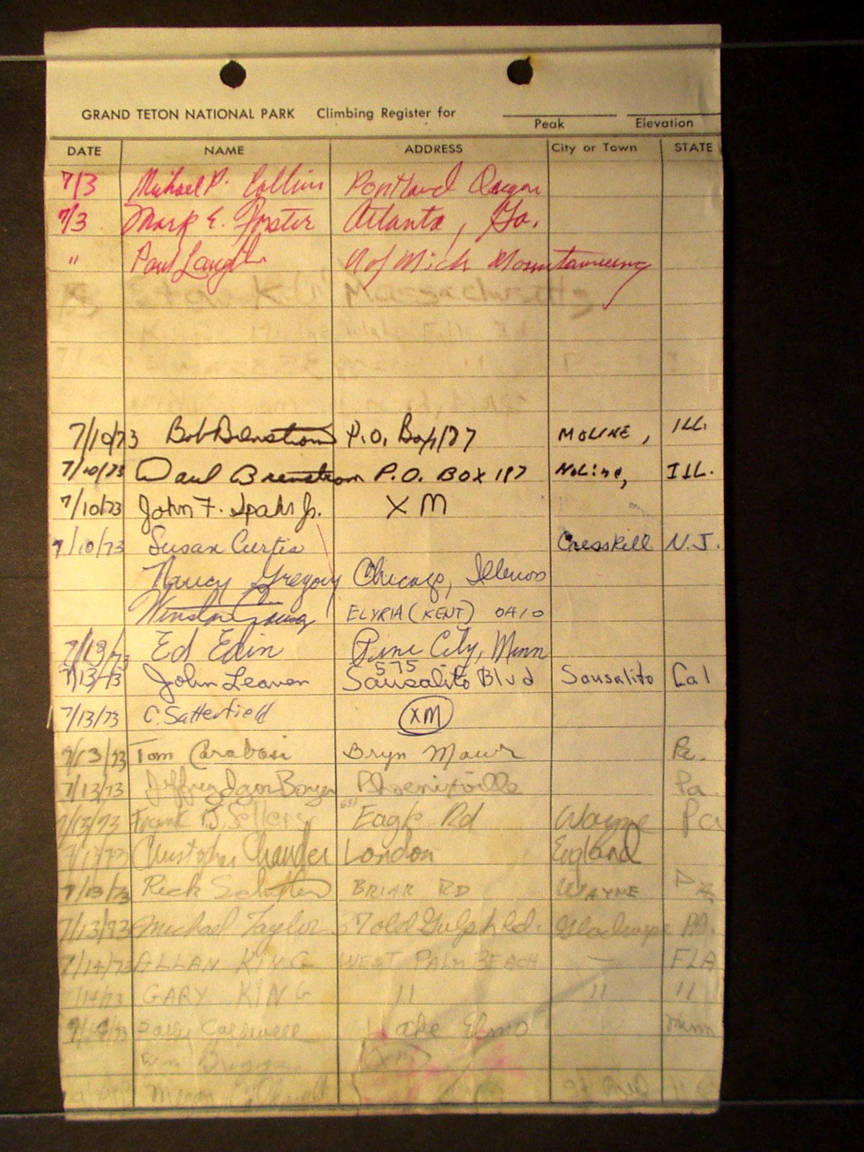 GRAND TETON NATIONAL PARK Climbing Register for
Peak Elevation
DATE NAME ADDRESS City or Town STATE
7/3 Michael P. Collins Portland Oregon
7/3 Mark E. Foster Atlanta, Ga.
" Paul U of Mich Mountaineering
7/10/73 Bob P.O. Box 187 MOLINE, ILL.
7/10/73 P.O. BOX 187 Moline, ILL.
7/10/73 John F. Spahr Jr. XM
7/10/73 Susan Curtis Cresskill N.J.
Nancy Gregory Chicago, Illinois
Winston ELYRIA (KENT) OHIO
7/13/73 Ed Edin Pine City, Minn
575
7/13/73 John Leaven Sausalito Blvd Sausalito Cal
7/13/73 C. Satterfield XM
7/13/73 Tom Carabasi Bryn Mawr Pa.
7/13/73 Jeffrey Igor Phoenixville Pa.
7/13/73 Frank D. Sellers Eagle Rd Wayne Pa
7/13/73 Christopher London England
7/13/73 Rick BRIAR RD WAYNE Pa
7/13/73 Michael Taylor old Gulph Rd. PA.
7/14/73 ALLAN KING WEST PALM BEACH — FLA
7/14/73 GARY KING " " "
Lake Elmo Minn